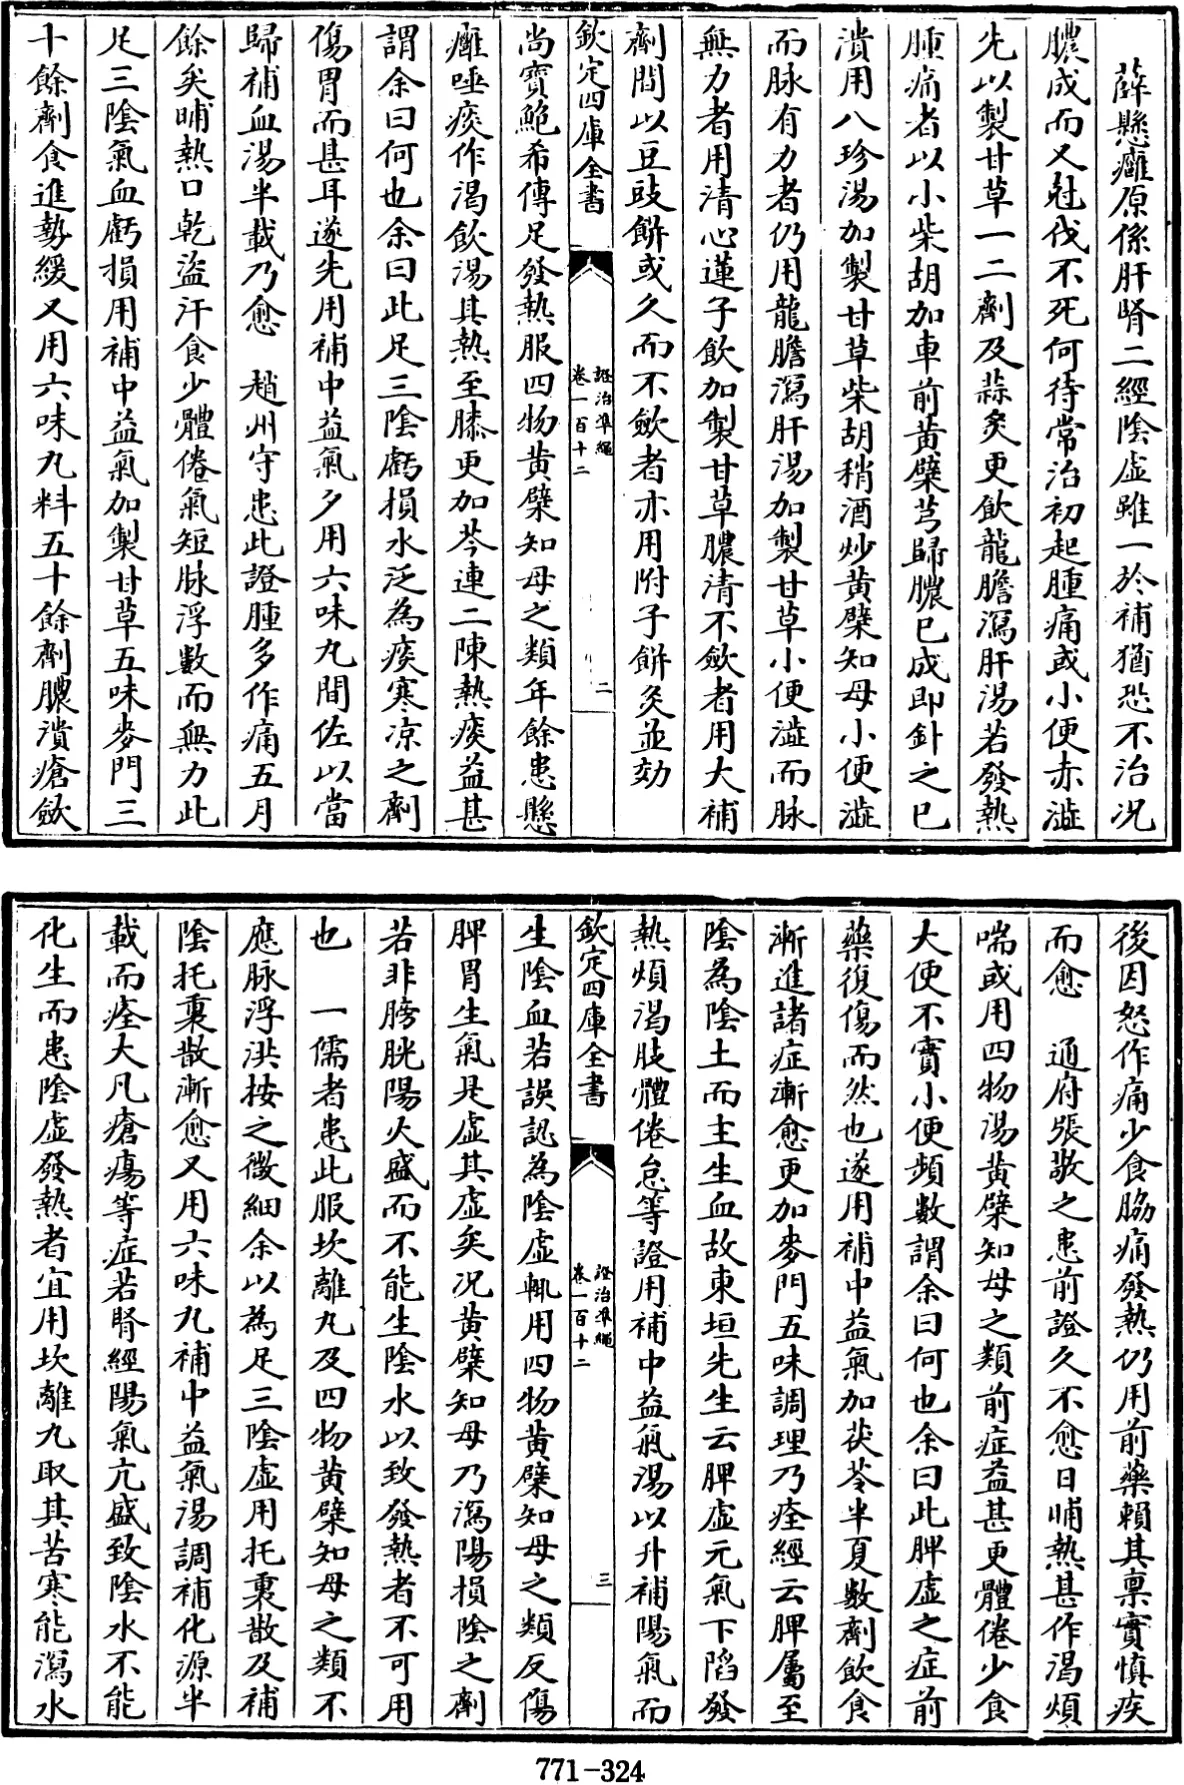 薛懸癰原係肝腎二經陰虛雖一於補猶恐不治况
膿成而又尅伐不死何待常治初起腫痛或小便赤澁
先以製甘草一二劑及蒜灸更飲龍膽瀉肝湯若發熱
腫痛者以小柴胡加車前黄蘗芎歸膿已成即針之已
潰用八珍湯加製甘草柴胡稍酒炒黄蘗知母小便澁
而脉有力者仍用龍膽瀉肝湯加製甘草小便澁而脉
無力者用清心蓮子飲加製甘草膿清不斂者用大補
劑間以豆豉餅或久而不斂者亦用附子餅灸並効
欽定四庫全書
證治凖繩
卷一百十二
二
尚寶鮑希傳足發熱服四物黄蘗知母之類年餘患懸
癰唾痰作渴飲湯其熱至膝更加芩連二陳熱痰益甚
謂余曰何也余曰此足三陰虧損水泛為痰寒凉之劑
傷胃而甚耳遂先用補中益氣夕用六味丸間佐以當
歸補血湯半載乃愈　趙州守患此證腫多作痛五月
餘矣晡熱口乾盜汗食少體倦氣短脉浮數而無力此
足三陰氣血虧損用補中益氣加製甘草五味麥門三
十餘劑食進勢緩又用六味丸料五十餘劑膿潰瘡斂
後因怒作痛少食脇痛發熱仍用前藥賴其稟實慎疾
而愈　通府張敬之患前證久不愈日晡熱甚作渴煩
喘或用四物湯黄蘗知母之類前症益甚更體倦少食
大便不實小便頻數謂余曰何也余曰此脾虛之症前
藥復傷而然也遂用補中益氣加茯苓半夏數劑飲食
漸進諸症漸愈更加麥門五味調理乃痊經云脾屬至
陰為陰土而主生血故東垣先生云脾虛元氣下陷發
熱煩渴肢體倦怠等證用補中益氣湯以升補陽氣而
欽定四庫全書
證治凖繩
卷一百十二
三
生陰血若誤認為陰虛輒用四物黄蘗知母之類反傷
脾胃生氣是虛其虛矣况黄蘗知母乃瀉陽損陰之劑
若非膀胱陽火盛而不能生陰水以致發熱者不可用
也　一儒者患此服坎離丸及四物黄蘗知母之類不
應脉浮洪按之微細余以為足三陰虛用托裏散及補
陰托裏散漸愈又用六味丸補中益氣湯調補化源半
載而痊大凡瘡瘍等症若腎經陽氣亢盛致陰水不能
化生而患陰虛發熱者宜用坎離丸取其苦寒能瀉水
771-324